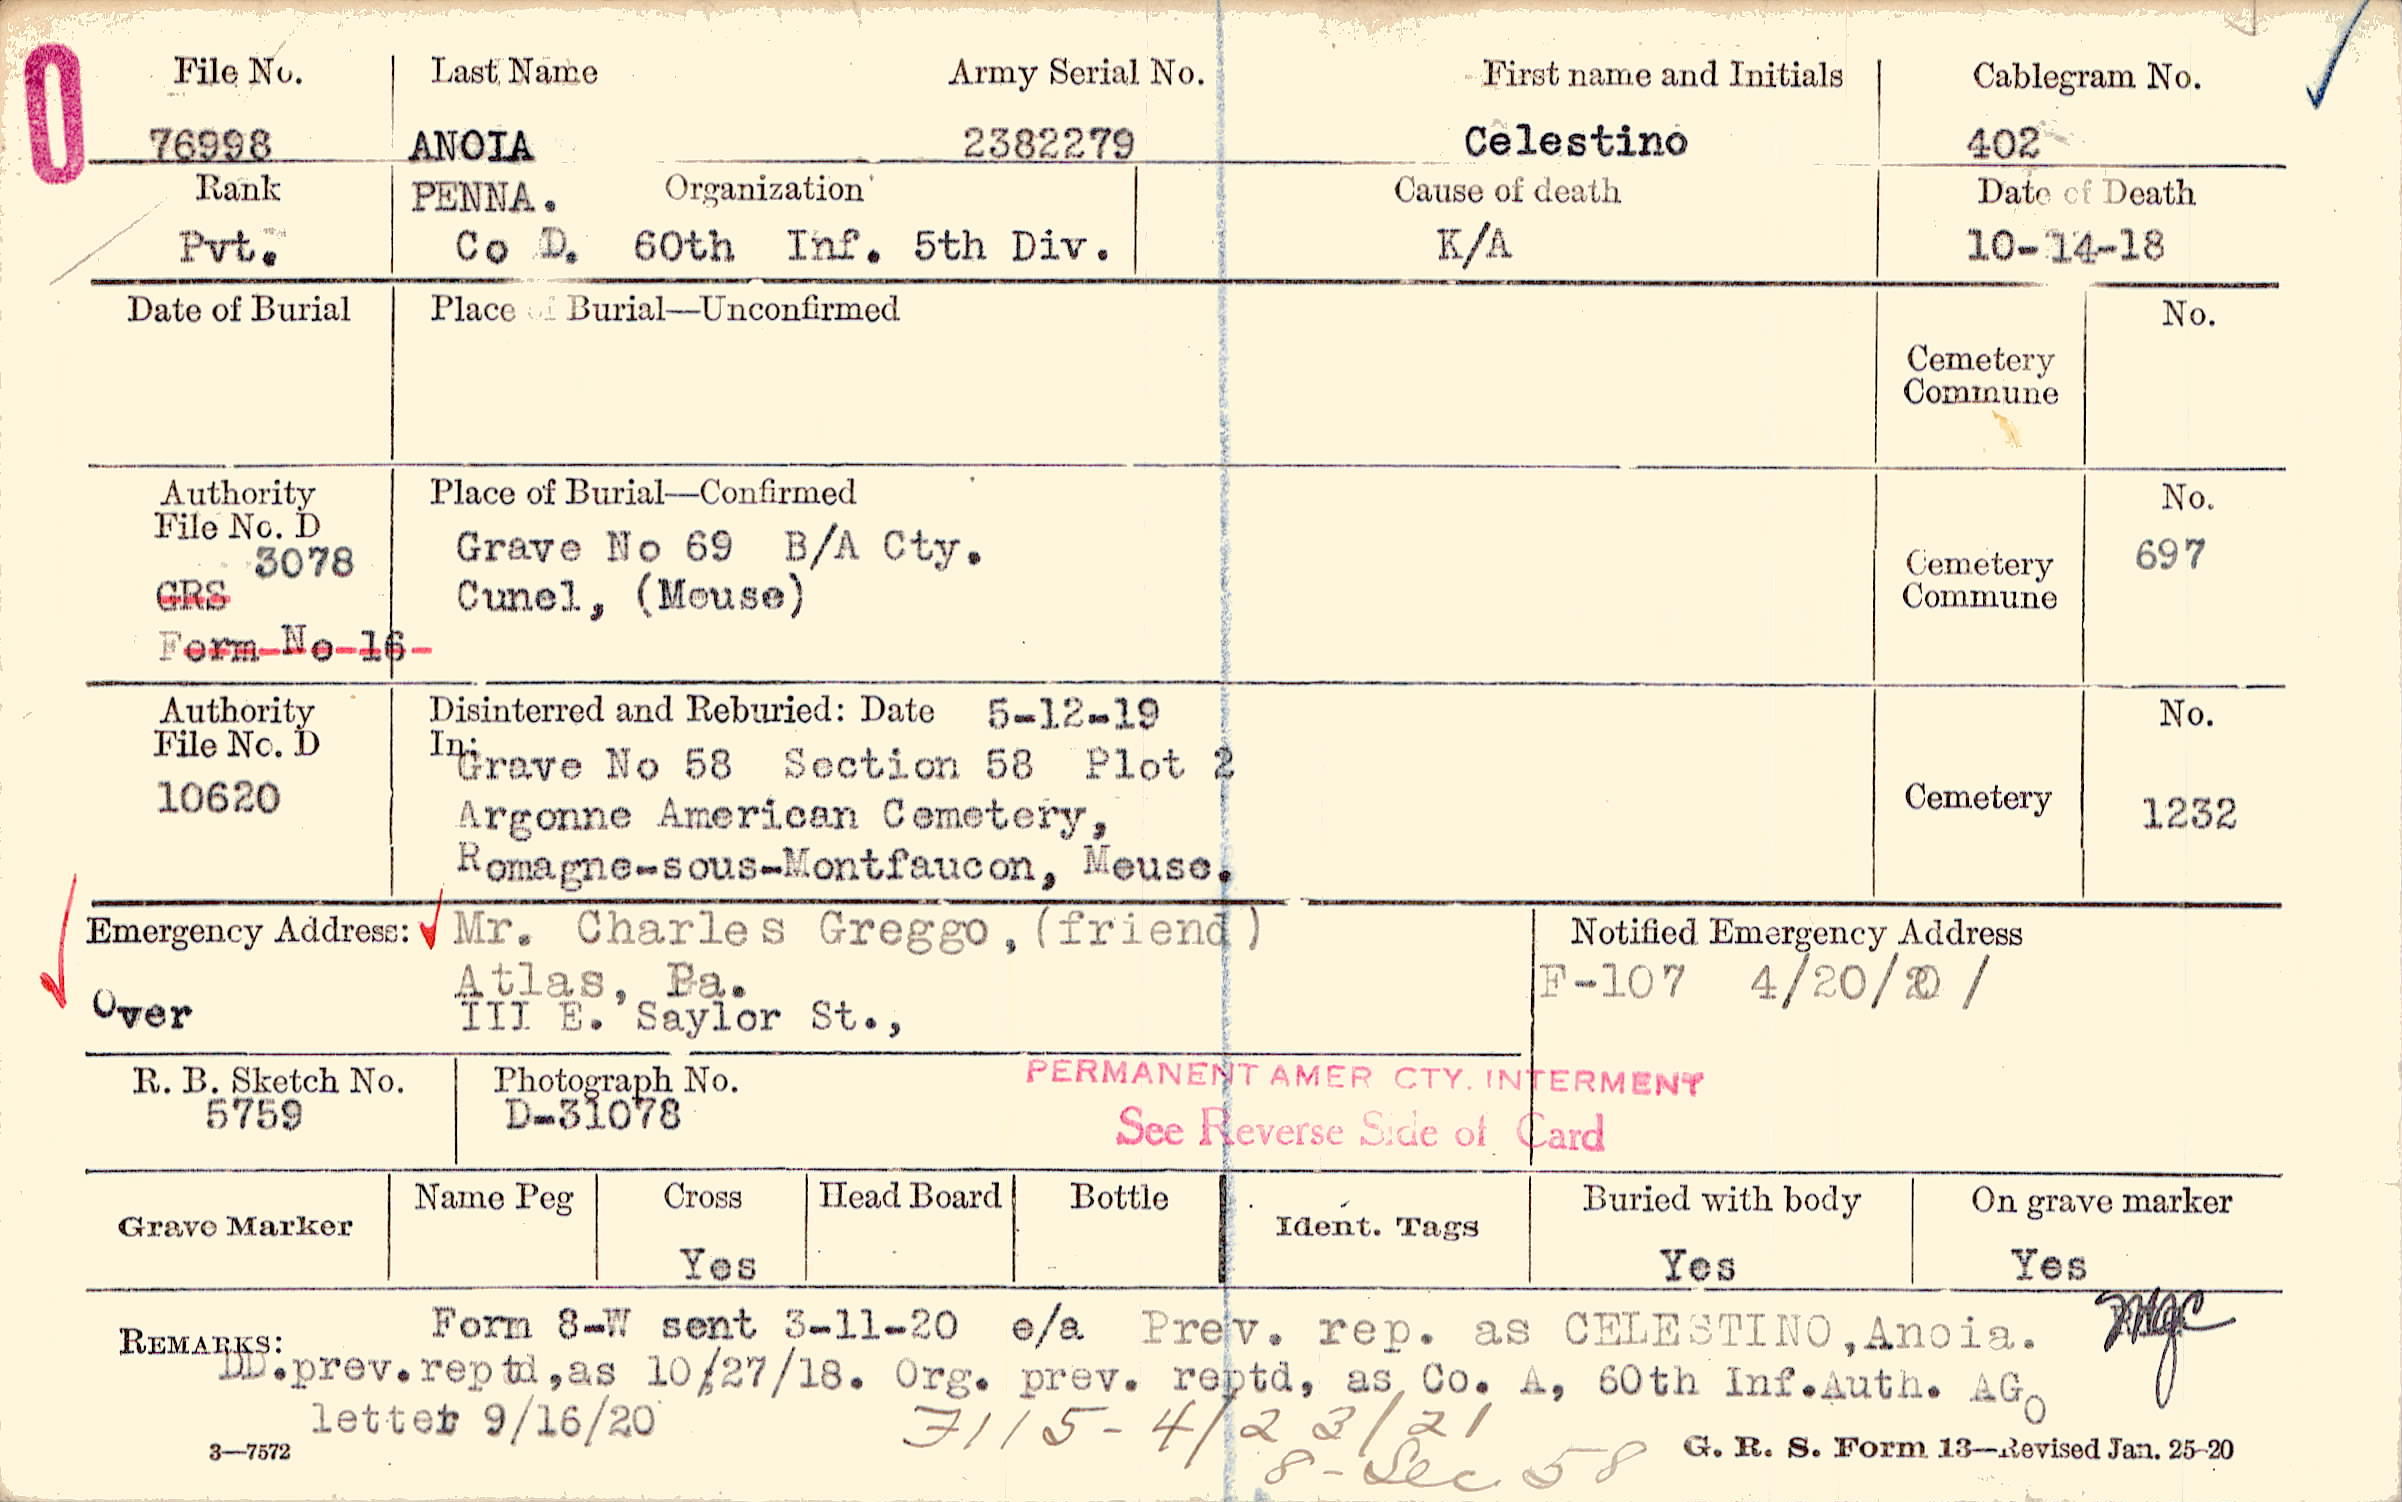 File No. Last Name Army Serial No. First name and Initials Cablegram No.
76998 ANOIA 2382279 Celestino 402
Rank PENNA. Organization Cause of death Date of Death
Pvt. Co D. 60th Inf. 5th Div. K/A 10-14-18
Date of Burial Place of Burial—Unconfirmed No.
Cemetery
Commune
Authority Place of Burial—Confirmed No.
File No. D
3078 Grave No 69 B/A Cty. 697
GRS Cunel, (Meuse) Cemetery
Commune
Form No 16-
Authority Disinterred and Reburied: Date 5-12-19 No.
File No. D In:
Grave No 58 Section 58 Plot 2
10620 Argonne American Cemetery, Cemetery 1232
Romagne-sous-Montfaucon, Meuse.
Emergency Address: Mr. Charles Greggo,(friend) Notified Emergency Address
Atlas, Pa. F-107 4/20/20 /
Over III E. Saylor St.,
R. B. Sketch No. Photograph No. PERMANENT AMER CTY. INTERMENT
5759 D-31078 See Reverse Side of Card
Grave Marker Name Peg Cross Head Board Bottle Ident. Tags Buried with body On grave marker
Yes Yes Yes
REMARKS: Form 8-W sent 3-11-20 e/a Prev. rep. as CELESTINO,Anoia.
DD.prev.reptd,as 10/27/18. Org. prev. reptd, as Co. A, 60th Inf.Auth. AGO
letter 9/16/20 7115-4/23/21
8-Sec 58
3—7572 G. R. S. Form 13—Revised Jan. 25-20